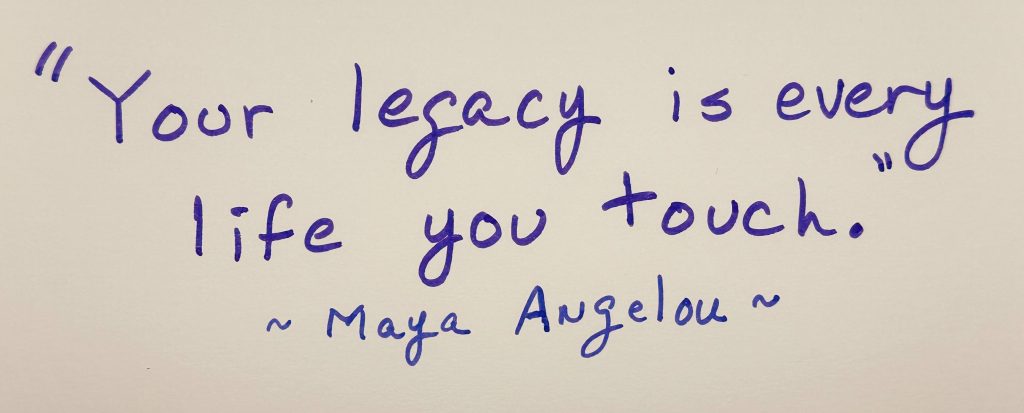 "Your legacy is every
life you touch."
~ Maya Angelou ~